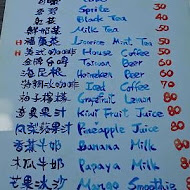 雪碧 Sprite 30
紅茶 Black Tea 20
鮮奶茶 Milk Tea 50
H 甘草茶 Licorice Mint Tea 50
H 美式咖啡 House Coffee 50
台灣啤酒 Taiwan Beer 60
海尼根 Heineken Beer 60
冰咖啡 Iced Coffee 70
葡萄柚 Grapefruit Lemon 80
奇異果汁 Kiwi Fruit Juice 80
鳳梨果汁 Pineapple Juice 80
香蕉牛奶 Banana Milk 80
木瓜牛奶 Papaya Milk 80
芒果冰沙 Mango Smoothie